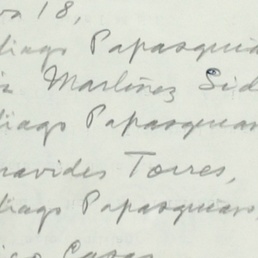 18,
tiago Papasquia
Martinez Sid
tiago Papasquiar
navides Torres,
tiago Papasquiaro,
Casas